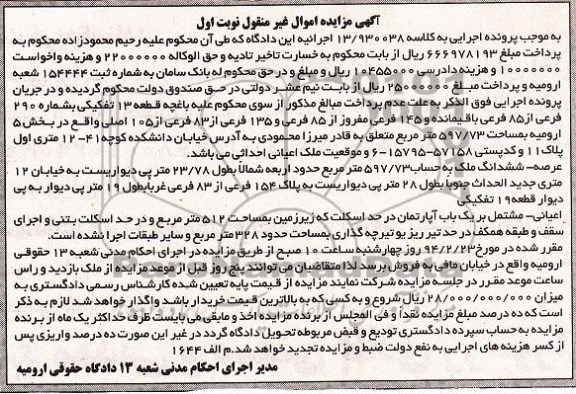 آگهی مزایده اموال غیر منقول نوبت اول
به موجب پرونده اجرایی به کلاسه ۱۳/۹۳۰۰۳۸ اجرائیه این دادگاه که طی آن محکوم علیه رحیم محمودزاده محکوم به
پرداخت مبلغ ۶۶۶۹۷۸۱۹۳ ریال از بابت محکوم به خسارت تاخیر تادیه و حق الوکاله ۲۲۰۰۰۰۰۰ و هزینه واخواست
۱۰۰۰۰۰۰۰ و هزینه دادرسی ۱۰۴۵۵۰۰۰ ریال و مبلغ و در حق محکوم له بانک سامان به شماره ثبت ۱۵۴۴۴۴ شعبه
ارومیه و پرداخت مبلغ ۲۵۰۰۰۰۰ ریال از بابت نیم عشر دولتی در حق صندوق دولت محکوم گردیده و در جریان
پرونده اجرایی فوق الذکر به علت عدم پرداخت مبالغ مذکور از سوی محکوم علیه باغچه قطعه ۱۳ تفکیکی بشماره ۲۹۰
فرعی از ۸۵ فرعی باقیمانده و ۱۴۵ فرعی مفروز از ۸۵ فرعی و ۱۳۵ فرعی از ۸۳ فرعی از ۱۰۵ اصلی واقع در بخش ۵
ارومیه بمساحت ۵۹۷/۷۳ متر مربع متعلق به قادر میرزا محمودی به آدرس خیابان دانشکده کوچه ۴۱- ۱۲ متری اول
پلاک ۱۱ و کدپستی ۵۷۱۵۸-۱۵۷۹۵-۶ و موقعیت ملک اعیانی احداثی می باشد.
عرصه- ششدانگ ملک به حساب ۵۹۷/۷۳ متر مربع حدود اربعه شمالاً بطول ۲۳/۷۸ متر پی دیواریست به خیابان ۱۲
متری جدید الحداث جنوباً بطول ۲۸ متر پی دیواریست به پلاک ۱۵۴ فرعی از ۸۳ فرعی غربابطول ۱۹ متر پی دیوار به پی
دیوار قطعه ۱۹ تفکیکی
اعیانی- مشتمل بر یک باب آپارتمان در حد اسکلت که زیرزمین بمساحت ۵۱۲ متر مربع و در حد اسکلت بتنی و اجرای
سقف و طبقه همکف در حد تیر ریزیو تیرچه گذاری بمساحت حدود ۳۲۸ متر مربع و سایر طبقات اجرا نشده است.
مقرر شده در مورخ ۹۴/۲/۲۳ روز چهارشنبه ساعت ۱۰ صبح از طریق مزایده در اجرای احکام مدنی شعبه ۱۳ حقوقی
ارومیه واقع در خیابان مافی به فروش برسد لذا متقاضیان می توانند پنج روز قبل از موعد مزایده از ملک بازدید و راس
ساعت موعد مقرر در جلسه مزایده شرکت نمایند مزایده از قیمت پایه تعیین شده کارشناس رسمی دادگستری به
میزان ۲۸/۰۰۰/۰۰۰/۰۰۰ ریال شروع و به کسی که به بالاترین قیمت خریدار باشد واگذار خواهد شد لازم به ذکر
است که ده درصد مبلغ مزایده نقداً و فی المجلس از برنده مزایده اخذ و مابقی می بایست ظرف حداکثر یک ماه از برنده
مزایده به حساب سپرده دادگستری تودیع و قبض مربوطه تحویل دادگاه گردد در غیر این صورت ده درصد واریزی پس
از کسر هزینه های اجرایی به نفع دولت ضبط و مزایده تجدید خواهد شد.م الف ۱۶۴۴
مدیر اجرای احکام مدنی شعبه ۱۳ دادگاه حقوقی ارومیه